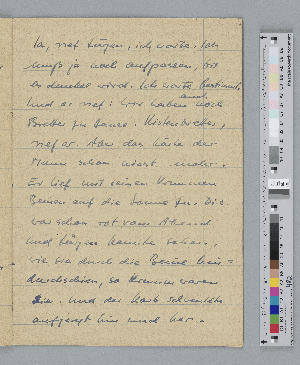 Ja, rief Jürgen, ich warte. Ich
muß ja noch aufpassen, bis
es dunkel wird. Ich warte bestimmt.
Und er rief: Wir haben auch noch
Bretter zu Hause. Kistenbretter,
rief er. Aber das hörte der
Mann schon nicht mehr.
Er lief mit seinen krummen
Beinen auf die Sonne zu. Die
war schon rot vom Abend
und Jürgen konnte sehen,
wie sie durch die Beine hin=
durchschien, so krumm waren
sie. Und der Korb schwenkte
aufgeregt hin und her.